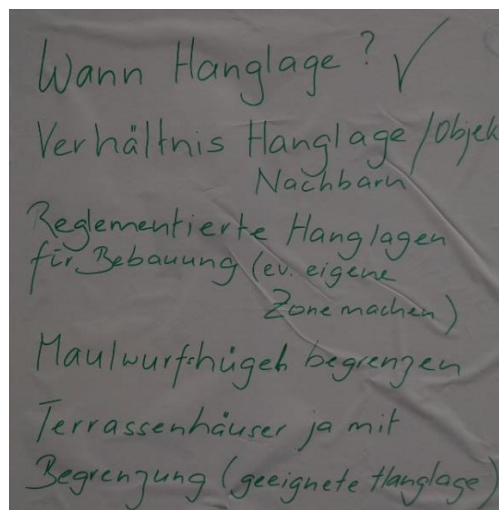 Wann Hanglage? ✓
Verhältnis Hanglage/Objek
Nachbarn
Reglementierte Hanglagen
für Bebauung (ev. eigene
Zone machen)
Maulwurfshügel begrenzen
Terrassenhäuser ja mit
Begrenzung (geeignete Hanglage)